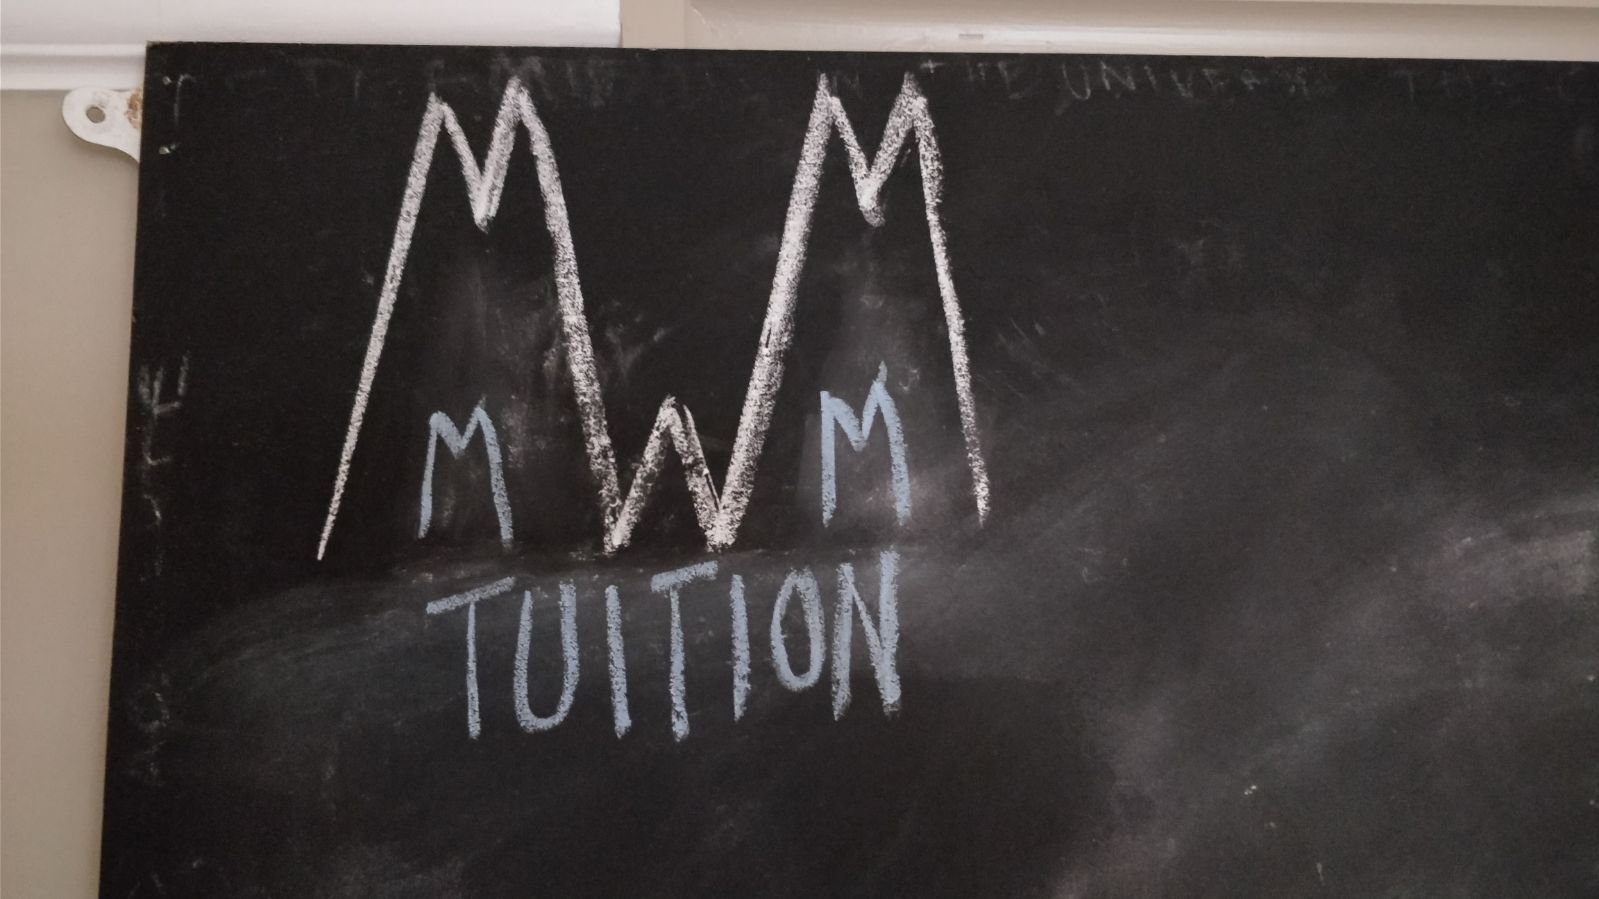 THE UNIVERSE
MWM
M M
TUITION